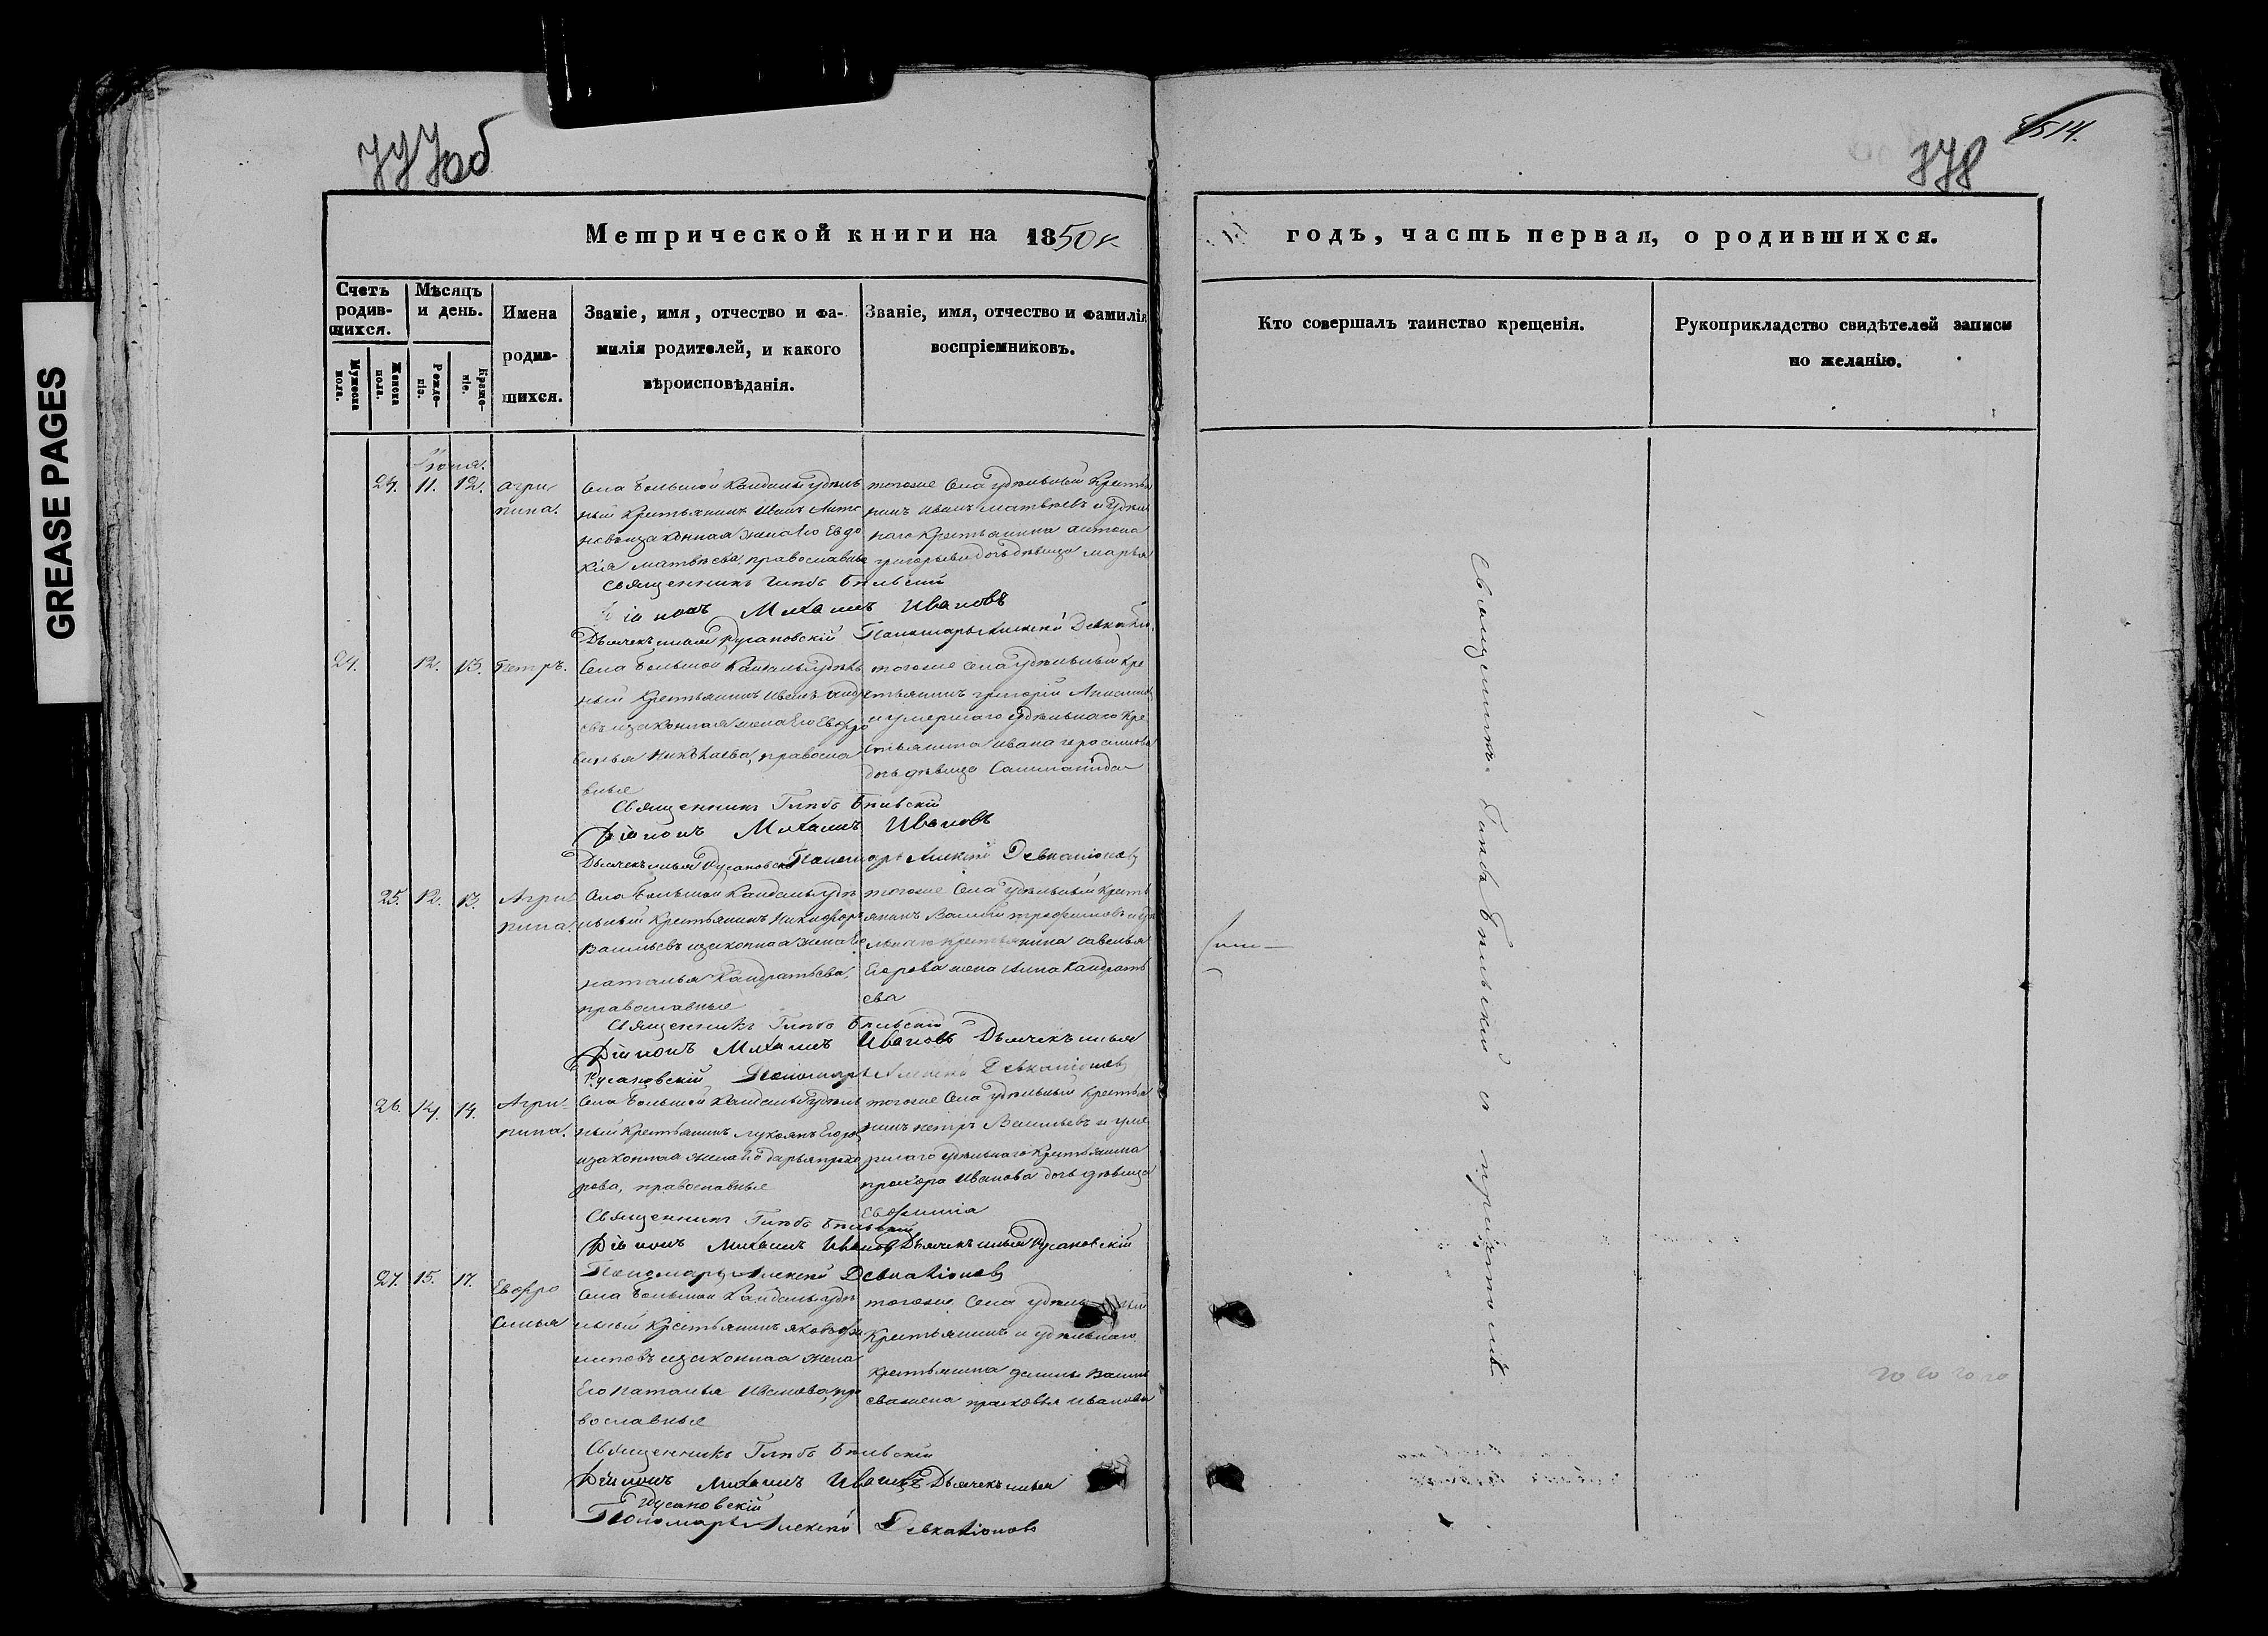 GREASE PAGES
777об
778
Метрической книги на 1850й
годъ, часть первая, о родившихся.
Счетъ родив-шихся.
Мужеска пола.
Женска пола.
Мѣсяцъ и день.
Рожде-нiе.
Креще-нiе.
Имена
родив-
шихся.
Званiе, имя, отчество и фа-
милiя родителей, и какого
вѣроисповѣданiя.
Званiе, имя, отчество и фамилiя
воспрiемниковъ.
Кто совершалъ таинство крещенiя.
Рукоприкладство свидѣтелей записи
по желанiю.
Iюня.
24. 11. 12.
Агри
пина.
Села Большой Кандалы удѣль
ный Крестьянинъ Иванъ Анто
новъ и законная жена Его Евдо
кiя Матвѣева, православные
тогоже Села удѣльный Крестья
нинъ Иванъ Матвѣевъ и удѣль
наго Крестьянина Антона
Григорьева дочь дѣвица Марья
Священникъ Глѣбъ Бѣльскiй
Дiаконъ Михаилъ Ивановъ
Дьячекъ Илья Русановскiй Пономарь Алексѣй
24. 12. 13.
Петръ.
Села Большой Кандалы удѣль
ный Крестьянинъ Иванъ Андре
евъ и законная жена Его Евфро
синья Николаева, правосла
вные
тогоже Села удѣльный Кре
стьянинъ Григорiй
и умершаго удѣльнаго Кре
стьянина Ивана Герасимова
дочь дѣвица
Священникъ Глѣбъ Бѣльскiй
Дiаконъ Михаилъ Ивановъ
Дьячекъ Илья Русановскiй Пономарь Алексѣй Девкалiоновъ
25. 12. 13.
Агри
пина.
Села Большой Кандалы удѣ
льный Крестьянинъ Никифоръ
Васильевъ и законная жена Его
Наталья Кандратьева,
православные
тогоже Села удѣльный Кресть
янинъ Василiй Трофимовъ и удѣ
льнаго Крестьянина Савелья
Егорова жена Анна Кандрать
ева
Священникъ Глѣбъ Бѣльскiй
Дiаконъ Михаилъ Ивановъ Дьячекъ Илья
Русановскiй Пономарь Алексѣй Девкалiоновъ
26. 14. 14.
Агри-
пина.
Села Большой Кандалы удѣль
ный Крестьянинъ Лукоянъ Егоровъ
и законная жена Его Дарья Прохо
рова, православные
тогоже Села удѣльный Крестья
нинъ Петръ Васильевъ и уме
ршаго удѣльнаго Крестьянина
Прохора Иванова дочь дѣвица
Евфимiя
Священникъ Глѣбъ Бѣльскiй
Дiаконъ Михаилъ Ивановъ Дьячекъ Илья Русановскiй
Пономарь Алексѣй Девкалiоновъ
27. 15. 17.
Евфро
синья
Села Большой Кандалы удѣ
льный Крестьянинъ Яковъ Фи
липовъ и законная жена
Его Наталья Иванова, пра
вославные
тогоже Села удѣльный
Крестьянинъ и удѣльнаго
крестьянина Данилы Василь
ева жена Прасковья Иванова
Священникъ Глѣбъ Бѣльскiй
Дiаконъ Михаилъ Ивановъ Дьячекъ Илья
Русановскiй
Пономарь Алексѣй Девкалiоновъ
Священникъ Глѣбъ Бѣльскiй съ причтомъ